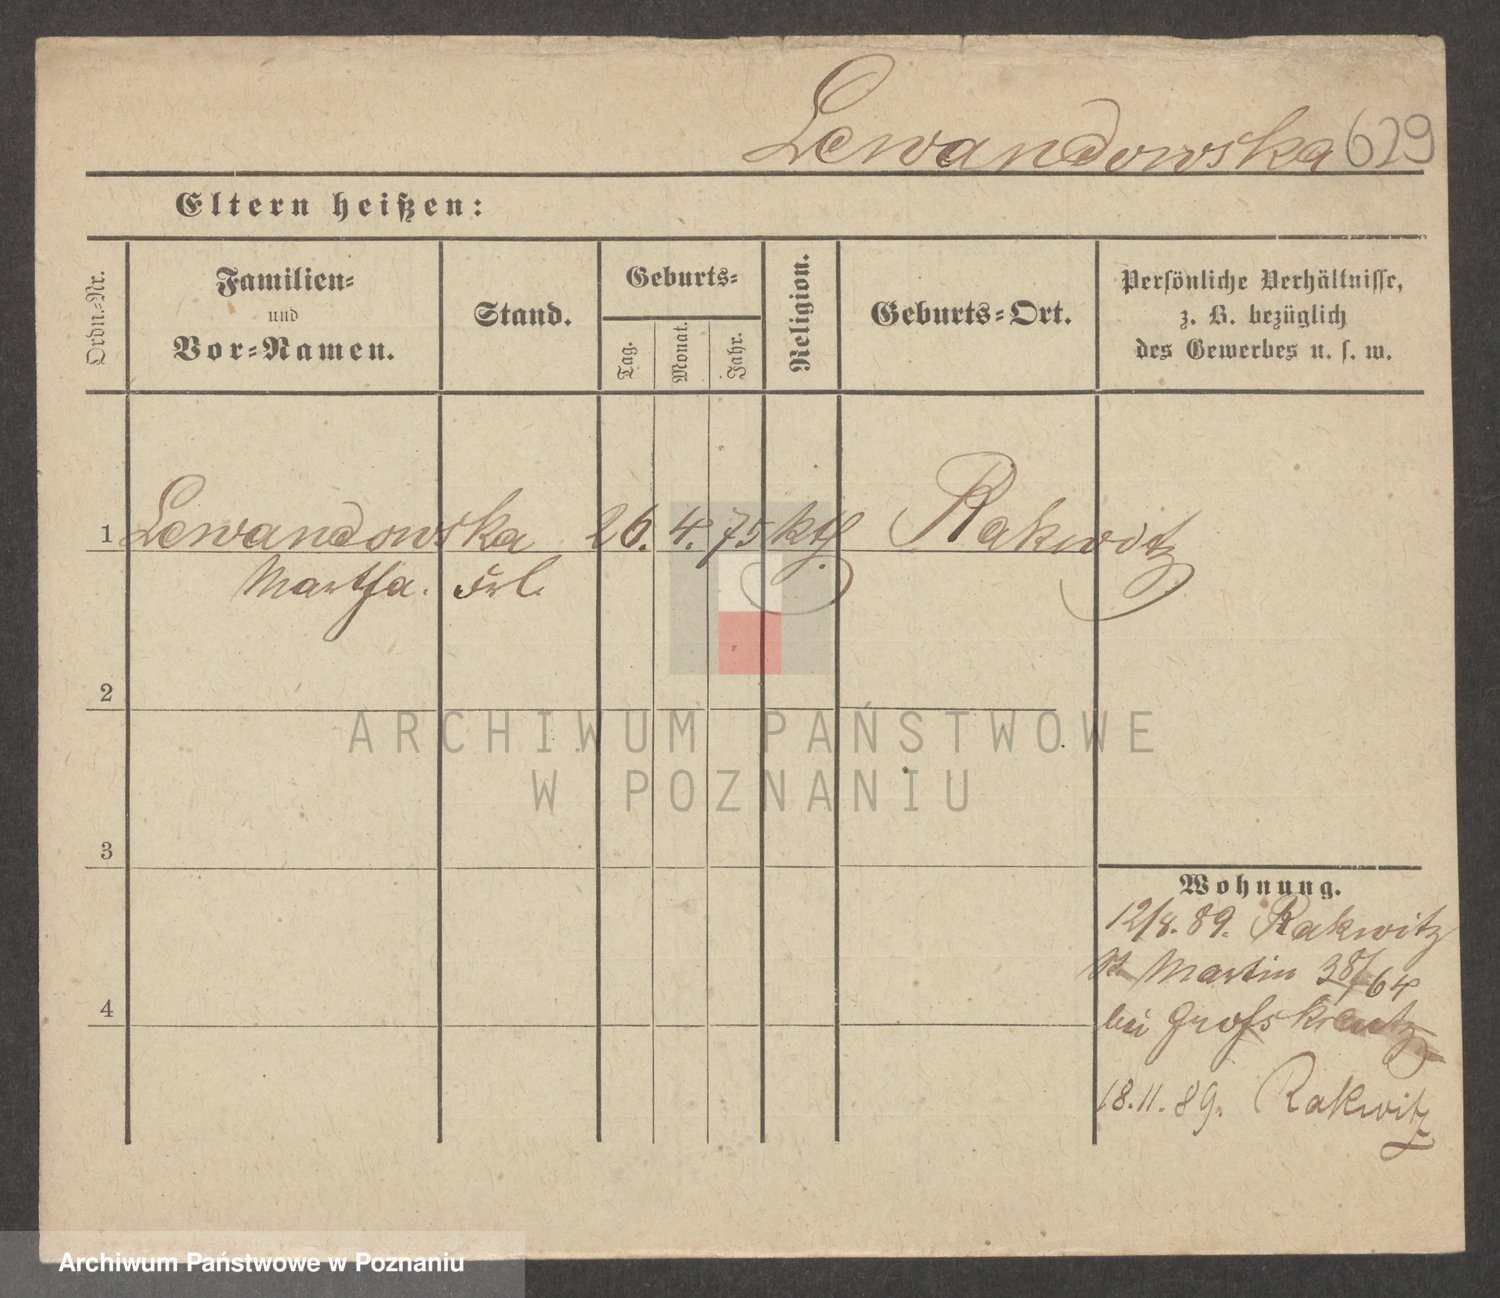 Lewandowska 629
Eltern heißen:
Ordn.-Nr.
Familien-
und
Vor-Namen.
Stand.
Geburts-
Tag.
Monat.
Jahr.
Religion.
Geburts-Ort.
Persönliche Verhältnisse,
z. B. bezüglich
des Gewerbes u. s. w.
1 Lewandowska 26. 4. 75 kth. Rakwitz
Martha. Frl.
2
ARCHIWUM PAŃSTWOWE
W POZNANIU
3
Wohnung.
12/8. 89. Rakwitz
St Martin 38/64
bei Grosskreutz
4
18.11.89. Rakwitz
Archiwum Państwowe w Poznaniu